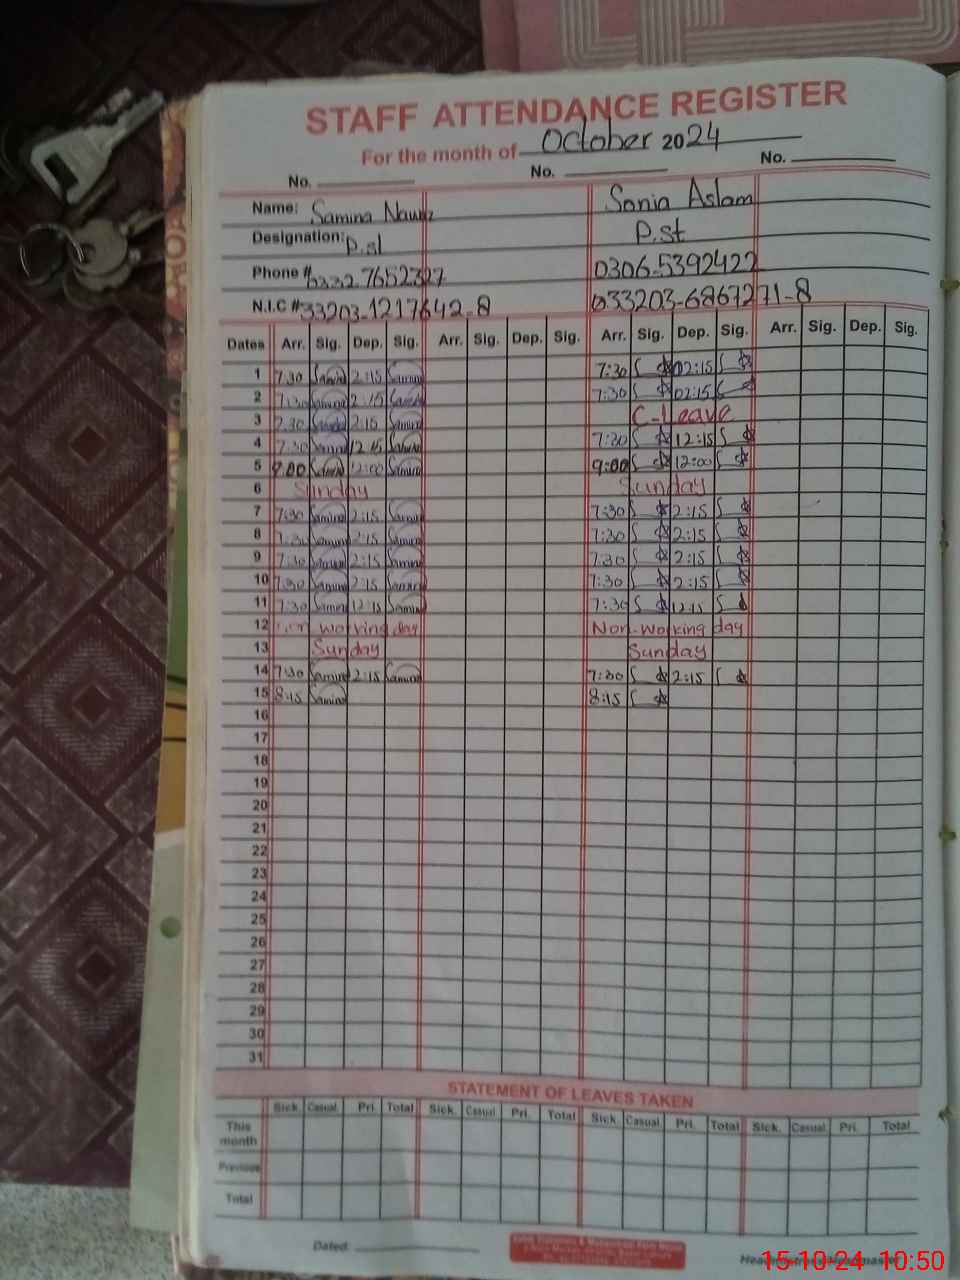 STAFF ATTENDANCE REGISTER
For the month of October 2024
No. No. No.
Name: Samina Sonia Aslam
Designation: P.st P.st
Phone # 0332-7652327 0306-5392422
N.I.C # 33203-1217642-8 33203-6867271-8
Dates Arr. Sig. Dep. Sig. Arr. Sig. Dep. Sig. Arr. Sig. Dep. Sig. Arr. Sig. Dep. Sig.
1 7:30 Samina 2:15 Samina 7:30 02:15
2 7:30 Samina 2:15 Samina 7:30 02:15
3 7:30 Samina 2:15 Samina C-Leave
4 7:30 Samina 12:15 Samina 7:30 12:15
5 9:00 Samina 12:00 Samina 9:00 12:00
6 Sunday Sunday
7 7:30 Samina 2:15 Samina 7:30 2:15
8 7:30 Samina 2:15 Samina 7:30 2:15
9 7:30 Samina 2:15 Samina 7:30 2:15
10 7:30 Samina 2:15 Samina 7:30 2:15
11 7:30 Samina 12:15 Samina 7:30 12:15
12 Non working day Non-working day
13 Sunday Sunday
14 7:30 Samina 2:15 Samina 7:30 2:15
15 8:15 Samina 8:15
16
17
18
19
20
21
22
23
24
25
26
27
28
29
30
31
STATEMENT OF LEAVES TAKEN
Sick. Casual. Pri. Total Sick. Casual. Pri. Total Sick. Casual. Pri. Total Sick. Casual. Pri. Total
This
month
Previous
Total
Dated
15-10-24 10:50